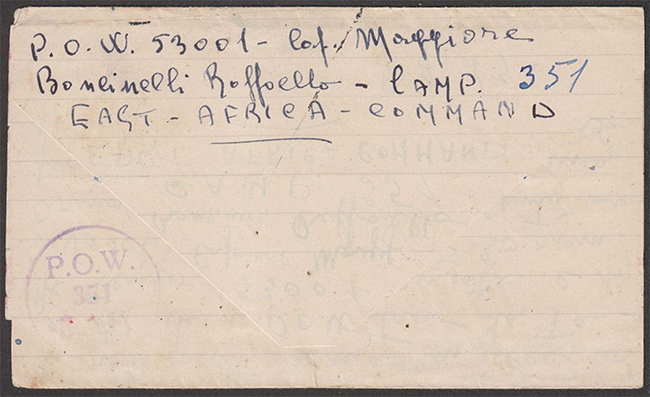 P.O.W. 53001 - Cap. Maggiore
Boncinelli Raffaello - CAMP. 351
EAST - AFRICA - COMMAND
P.O.W.
351